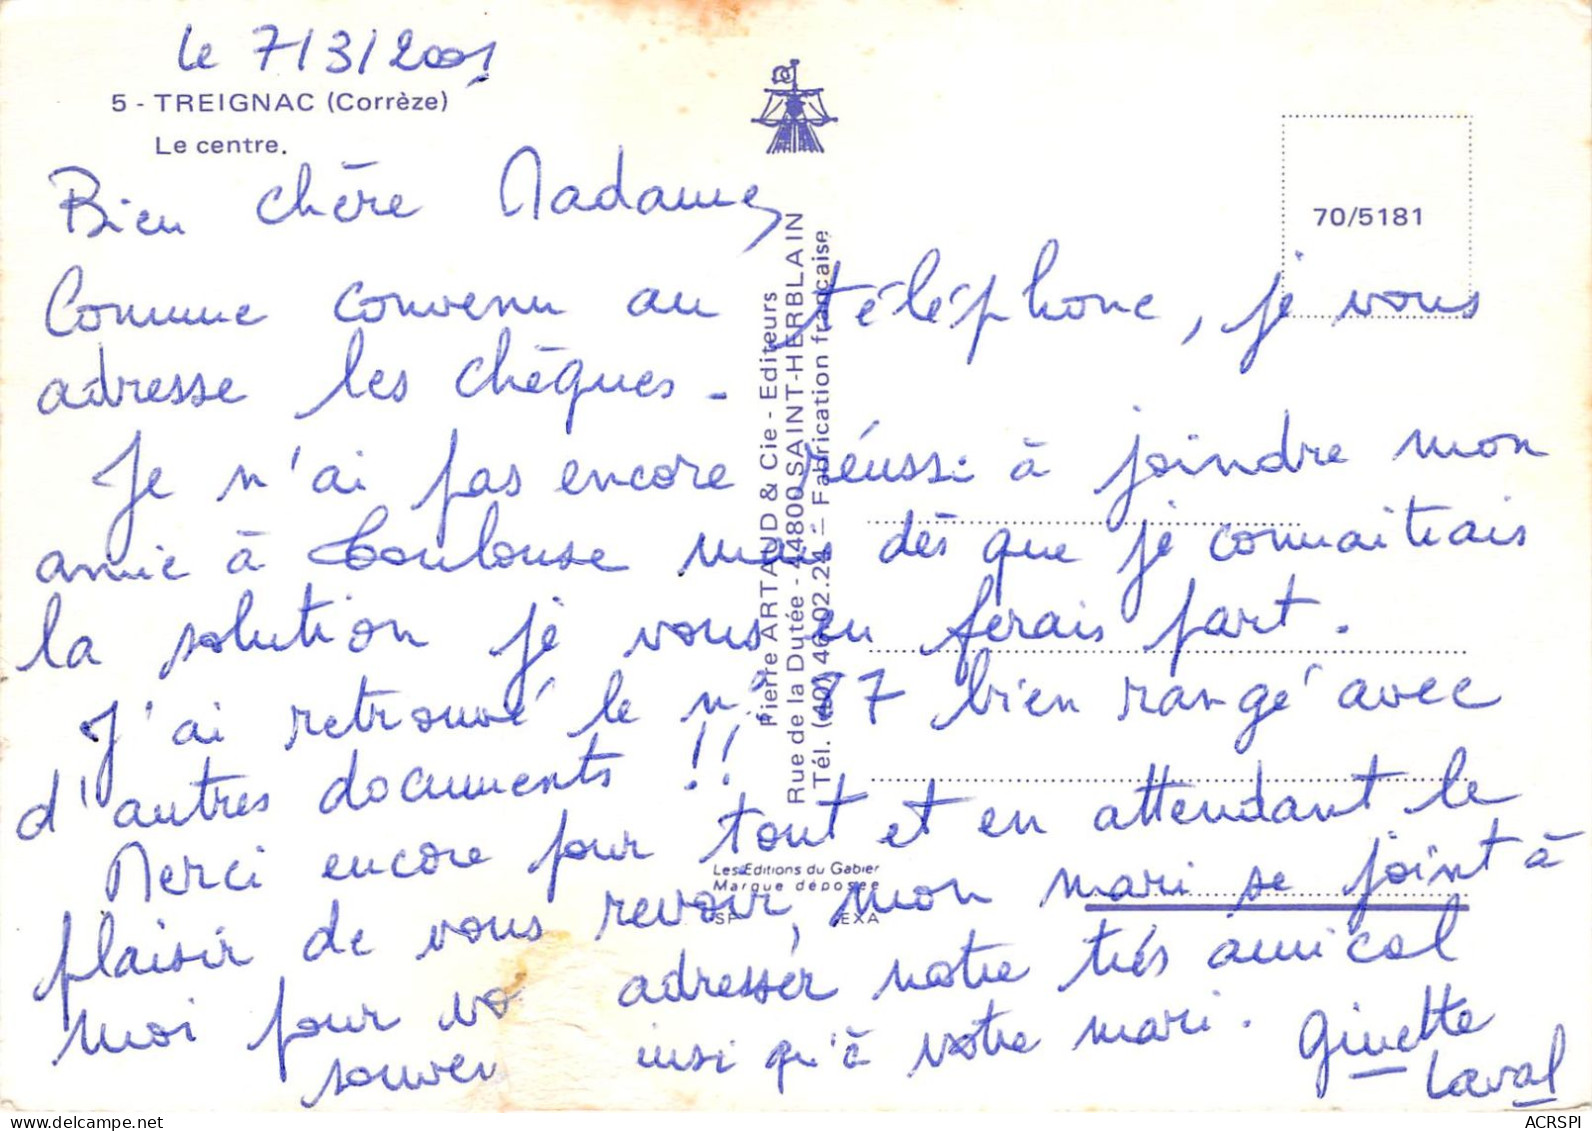 le 7/3/2001
5 - TREIGNAC (Corrèze)
Le centre.
70/5181
Bien chère Madame,
Comme convenu au téléphone, je vous
adresse les chèques.
Je n'ai pas encore réussi à joindre mon
amie à Toulouse mais dès que je connaitrais
la solution je vous en ferais part.
J'ai retrouvé le n° 87 bien rangé avec
d'autres documents !!
Merci encore pour tout et en attendant le
plaisir de vous revoir, mon mari se joint à
moi pour vo adresser notre très amical
souven insi qu'à votre mari.
Ginette
Laval
Pierre ARTAUD & Cie - Editeurs
Rue de la Dutée - 44800 SAINT-HERBLAIN
Tél. (40) 46.02.24 - Fabrication française
Les Editions du Gabier
Marque déposée
EXA
www.delcampe.net
ACRSPI